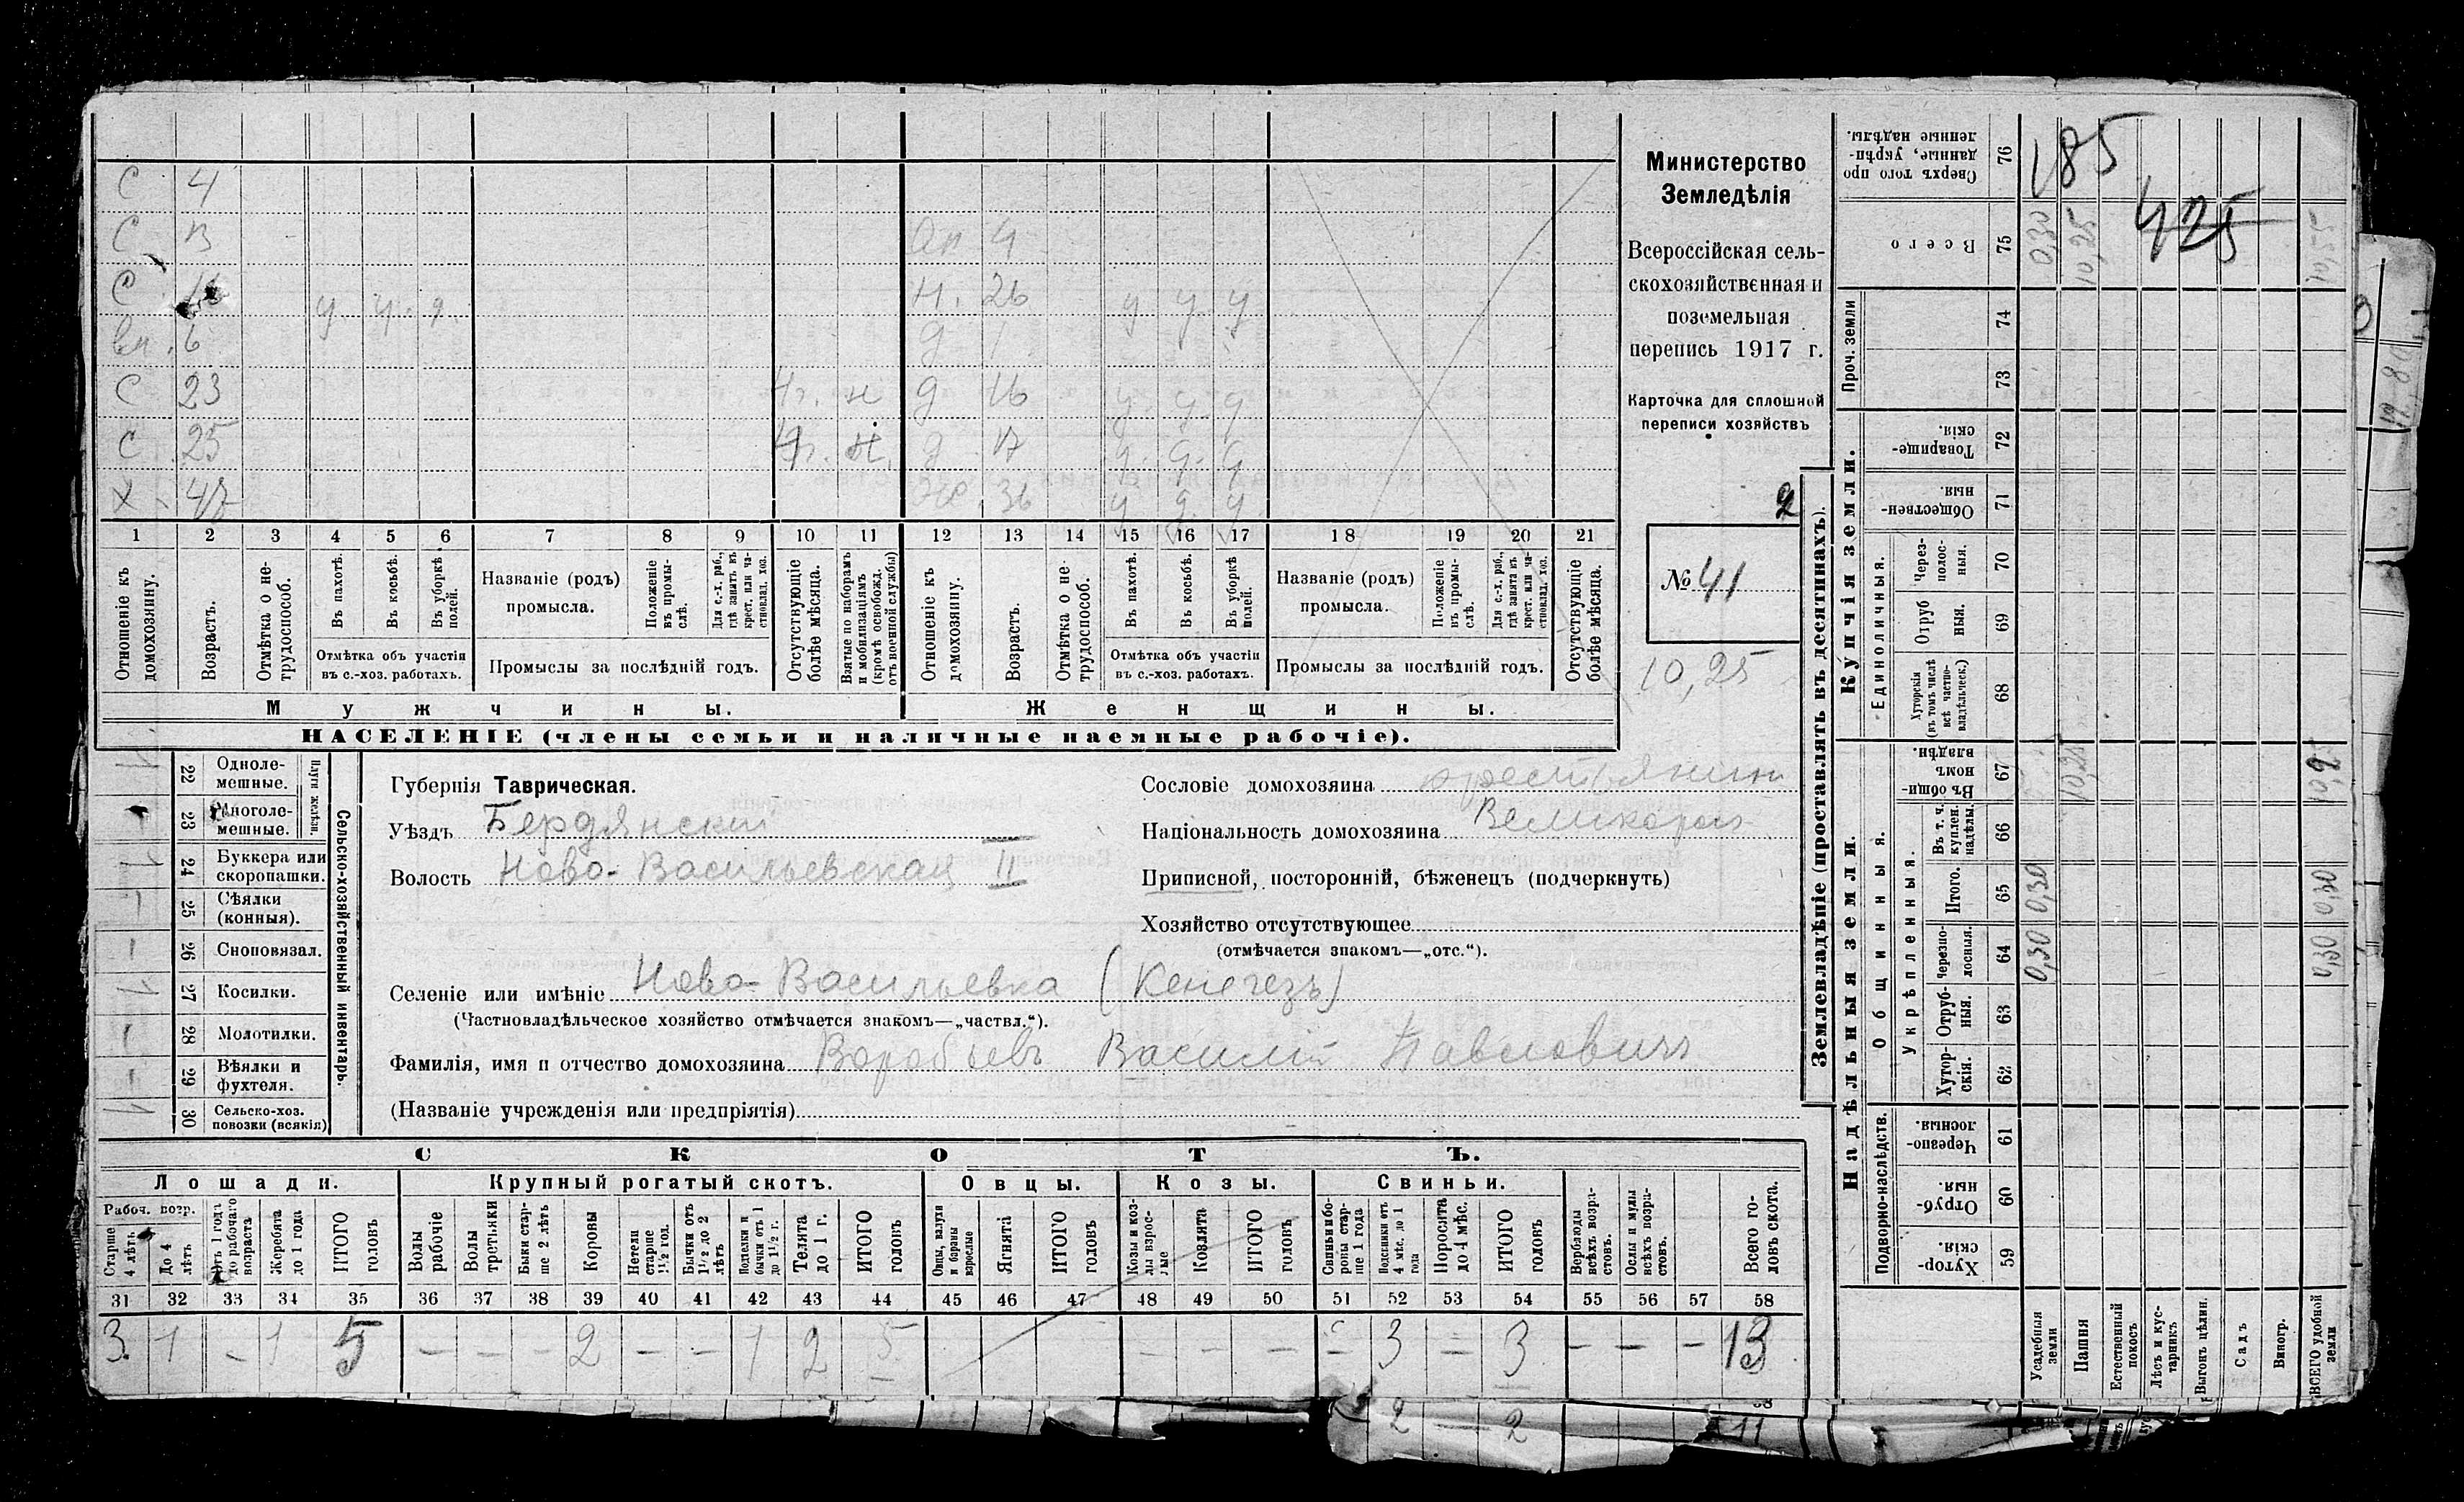 Министерство
Земледѣлія
Всероссійская сель-
скохозяйственная и
поземельная
перепись 1917 г.
Карточка для сплошной
переписи хозяйствъ
2
№ 41
10,25
С 4
С 13
С у у у
вн. 6
С 23 н
С 25
Х 47
4
н. 26 у у у
д 1
д 16 у у у
д 17 у у у
ж 36 у у у
1 2 3 4 5 6 7 8 9 10 11 12 13 14 15 16 17 18 19 20 21
Отношеніе къ домохозяину.
Возрастъ.
Отмѣтка о не-трудоспособ.
Въ пахотѣ.
Въ косьбѣ.
Въ уборкѣ полей.
Отмѣтка объ участіи
въ с.-хоз. работахъ.
Названіе (родъ)
промысла.
Положеніе въ промы-слѣ.
Для с.-х. раб., гдѣ занятъ въ крест. или ча-стновлад. хоз.
Промыслы за послѣдній годъ.
Отсутствующіе болѣе мѣсяца.
Взятые по наборамъ и мобилизаціямъ (кромѣ освобожд. отъ военной службы)
Отношеніе къ домохозяину.
Возрастъ.
Отмѣтка о не-трудоспособ.
Въ пахотѣ.
Въ косьбѣ.
Въ уборкѣ полей.
Отмѣтка объ участіи
въ с.-хоз. работахъ.
Названіе (родъ)
промысла.
Положеніе въ промы-слѣ.
Для с.-х. раб., гдѣ занята въ крест. или ча-стновлад. хоз.
Промыслы за послѣдній годъ.
Отсутствующіе болѣе мѣсяца.
Мужчины. Женщины.
НАСЕЛЕНІЕ (члены семьи и наличные наемные рабочіе).
22 Одноле-мешные.
23 Многоле-мешные.
Плуги желѣзн.
24 Буккера или скоропашки.
25 Сѣялки (конныя).
26 Сноповязал.
27 Косилки.
28 Молотилки.
29 Вѣялки и фухтеля.
30 Сельско-хоз. повозки (всякія)
Сельско-хозяйственный инвентарь.
Губернія Таврическая.
Уѣздъ Бердянскій
Волость Ново-Васильевская II
Селеніе или имѣніе Ново-Васильевка (Кенегезъ)
(Частновладѣльческое хозяйство отмѣчается знакомъ—„частвл.“).
Фамилія, имя и отчество домохозяина Воробьевъ Василій Павловичъ
(Названіе учрежденія или предпріятія)
Сословіе домохозяина крестьянин
Національность домохозяина Великоросъ
Приписной, посторонній, бѣженецъ (подчеркнуть)
Хозяйство отсутствующее
(отмѣчается знакомъ—„отс.“).
СКОТЪ.
Лошади. Крупный рогатый скотъ. Овцы. Козы. Свиньи.
Рабоч. возр.
Старше 4 лѣтъ.
До 4 лѣтъ
Отъ 1 года до рабочаго возраста
Жеребята до 1 года
ИТОГО головъ
Волы рабочіе
Волы третьяки
Быки стар-ше 2 лѣтъ
Коровы
Нетели старше 1½ год.
Бычки отъ 1½ до 2 лѣтъ
Подтелки и бычки отъ 1 до 1½ г.
Телята до 1 г.
ИТОГО головъ
Овцы, валухи и бараны взрослые
Ягнята
ИТОГО головъ
Козы и коз-лы взрос-лые
Козлята
ИТОГО головъ
Свиньи и бо-ровы стар-ше 1 года
Подсвинки отъ 4 мѣс. до 1 года
Поросята до 4 мѣс.
ИТОГО головъ
Верблюды всѣхъ возра-стовъ.
Ослы и мулы всѣхъ возра-стовъ.
Всего го-ловъ скота.
31 32 33 34 35 36 37 38 39 40 41 42 43 44 45 46 47 48 49 50 51 52 53 54 55 56 57 58
3 1 – 1 5 – – – 2 – – 1 2 5 – – – – 3 – 3 – – – 13
2 – 2 11
Землевладѣніе (проставлять въ десятинахъ).
Надѣльныя земли. Купчія земли. Проч. земли
Подворно-наслѣдств.
Общинныя.
Укрѣпленныя.
Единоличныя.
59 Хутор-скія.
60 Отруб-ныя.
61 Черезпо-лосныя.
62 Хутор-скія.
63 Отруб-ныя.
64 Черезпо-лосныя.
65 Итого.
66 Въ т. ч. куплен. надѣлы.
67 Въ общин-номъ владѣн.
68 Хуторскія (въ томъ числѣ всѣ частно-владѣльческ.)
69 Отруб ныя.
70 Через-полос-ныя.
71 Обществен-ныя.
72 Товарище-скія.
73
74
75 Всего
76 Сверхъ того про данные, укрѣп-ленные надѣлы.
Усадебныя земли 0,30 0,30 0,30
Пашня 10,25 10,25
Естественный покосъ
Лѣсъ и кус-тарникъ
Выгонъ цѣлин.
Садъ
Виногр.
ВСЕГО удобной земли 0,30 0,30 10,25 10,55
185
425